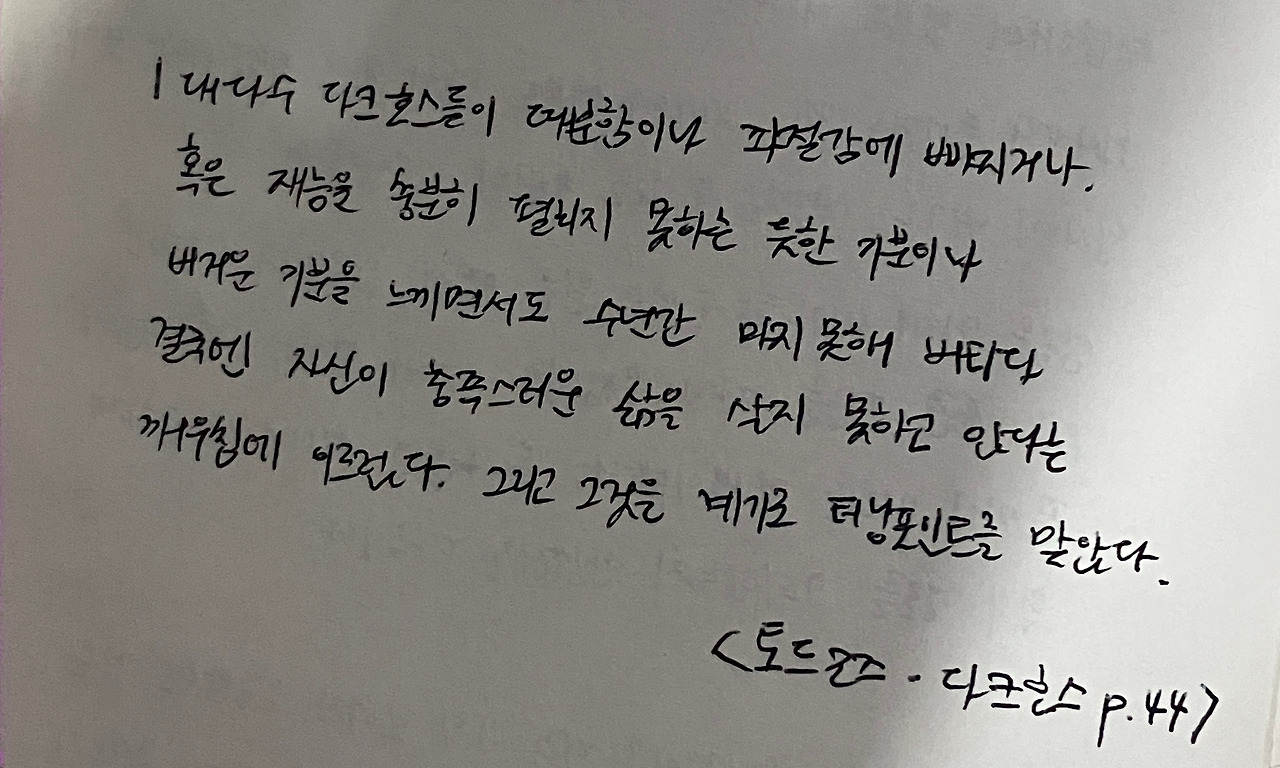 | 대다수 다크호스들이 따분함이나 좌절감에 빠지거나.
혹은 재능을 충분히 펼치지 못하는 듯한 기분이나
버거운 기분을 느끼면서도 수년간 마지 못해 버티다
결국엔 자신이 충족스러운 삶을 살지 못하고 있다는
깨우침에 이르렀다. 그리고 그것을 계기로 터닝포인트를 맞았다.
<토드로즈 - 다크호스 p.44>